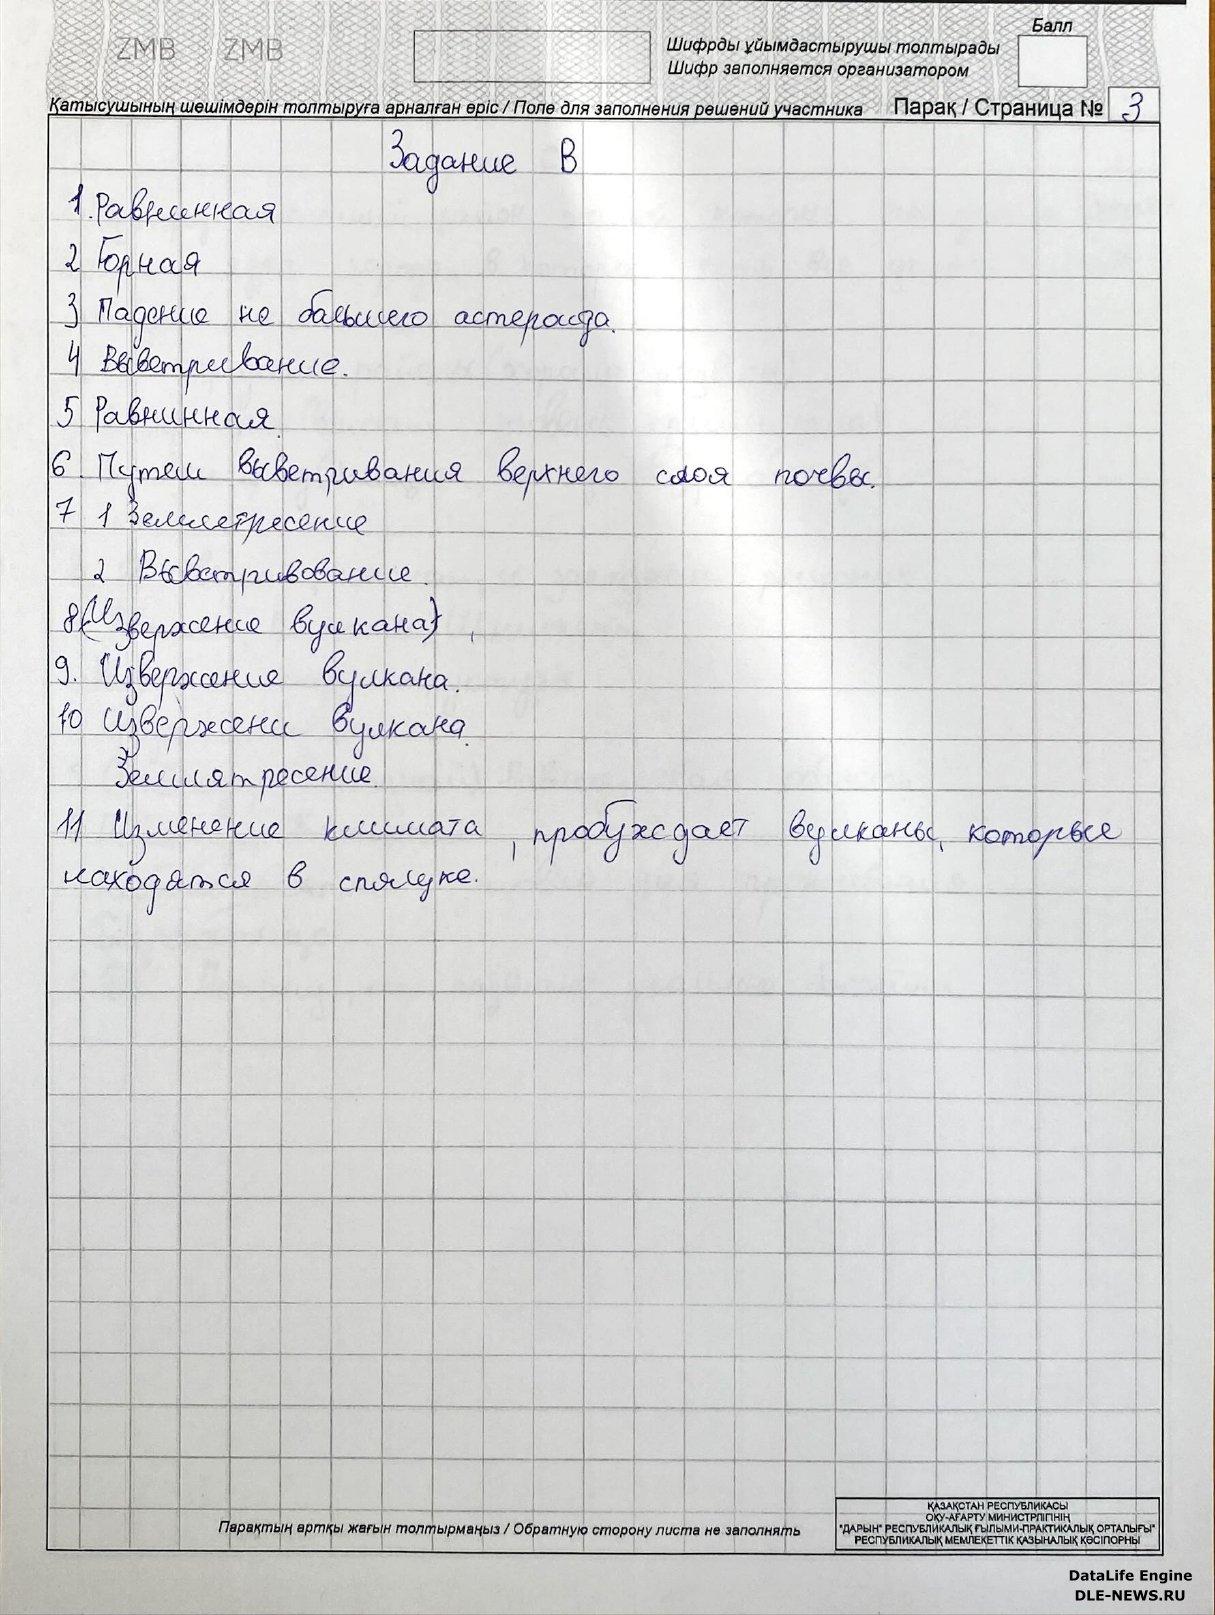 ZMB ZMB
Балл
Шифрды ұйымдастырушы толтырады
Шифр заполняется организатором
Қатысушының шешімдерін толтыруға арналған өріс / Поле для заполнения решений участника Парақ / Страница № 3
Задание В
1. Равнинная
2 Горная
3 Падение не большего астероида.
4 Выветривание.
5 Равнинная.
6. Путем выветривания верхнего слоя почвы.
7 1 Землетресение
2 Выветривование.
8 (Извержение вулкана),
9. Извержения вулкана.
10 Извержени вулкана.
Землятресение.
11 Изменение климата, пробуждает вулканы, которые
находятся в спячке.
Парақтың артқы жағын толтырмаңыз / Обратную сторону листа не заполнять
ҚАЗАҚСТАН РЕСПУБЛИКАСЫ
ОҚУ-АҒАРТУ МИНИСТРЛІГІНІҢ
"ДАРЫН" РЕСПУБЛИКАЛЫҚ ҒЫЛЫМИ-ПРАКТИКАЛЫҚ ОРТАЛЫҒЫ"
РЕСПУБЛИКАЛЫҚ МЕМЛЕКЕТТІК ҚАЗЫНАЛЫҚ КӘСІПОРНЫ
DataLife Engine
DLE-NEWS.RU